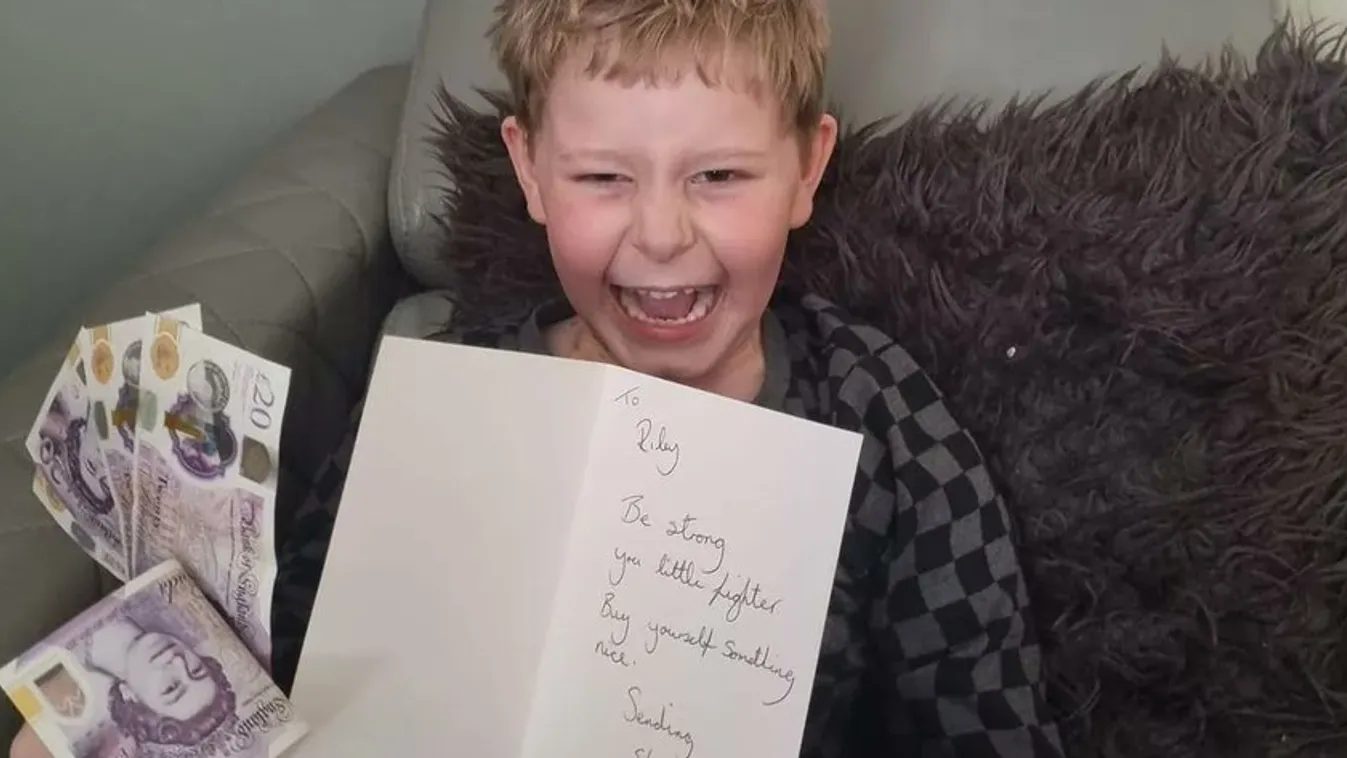 £20
Bank of England
To
Riley
Be strong
you little fighter
Buy yourself something
nice.
Sending